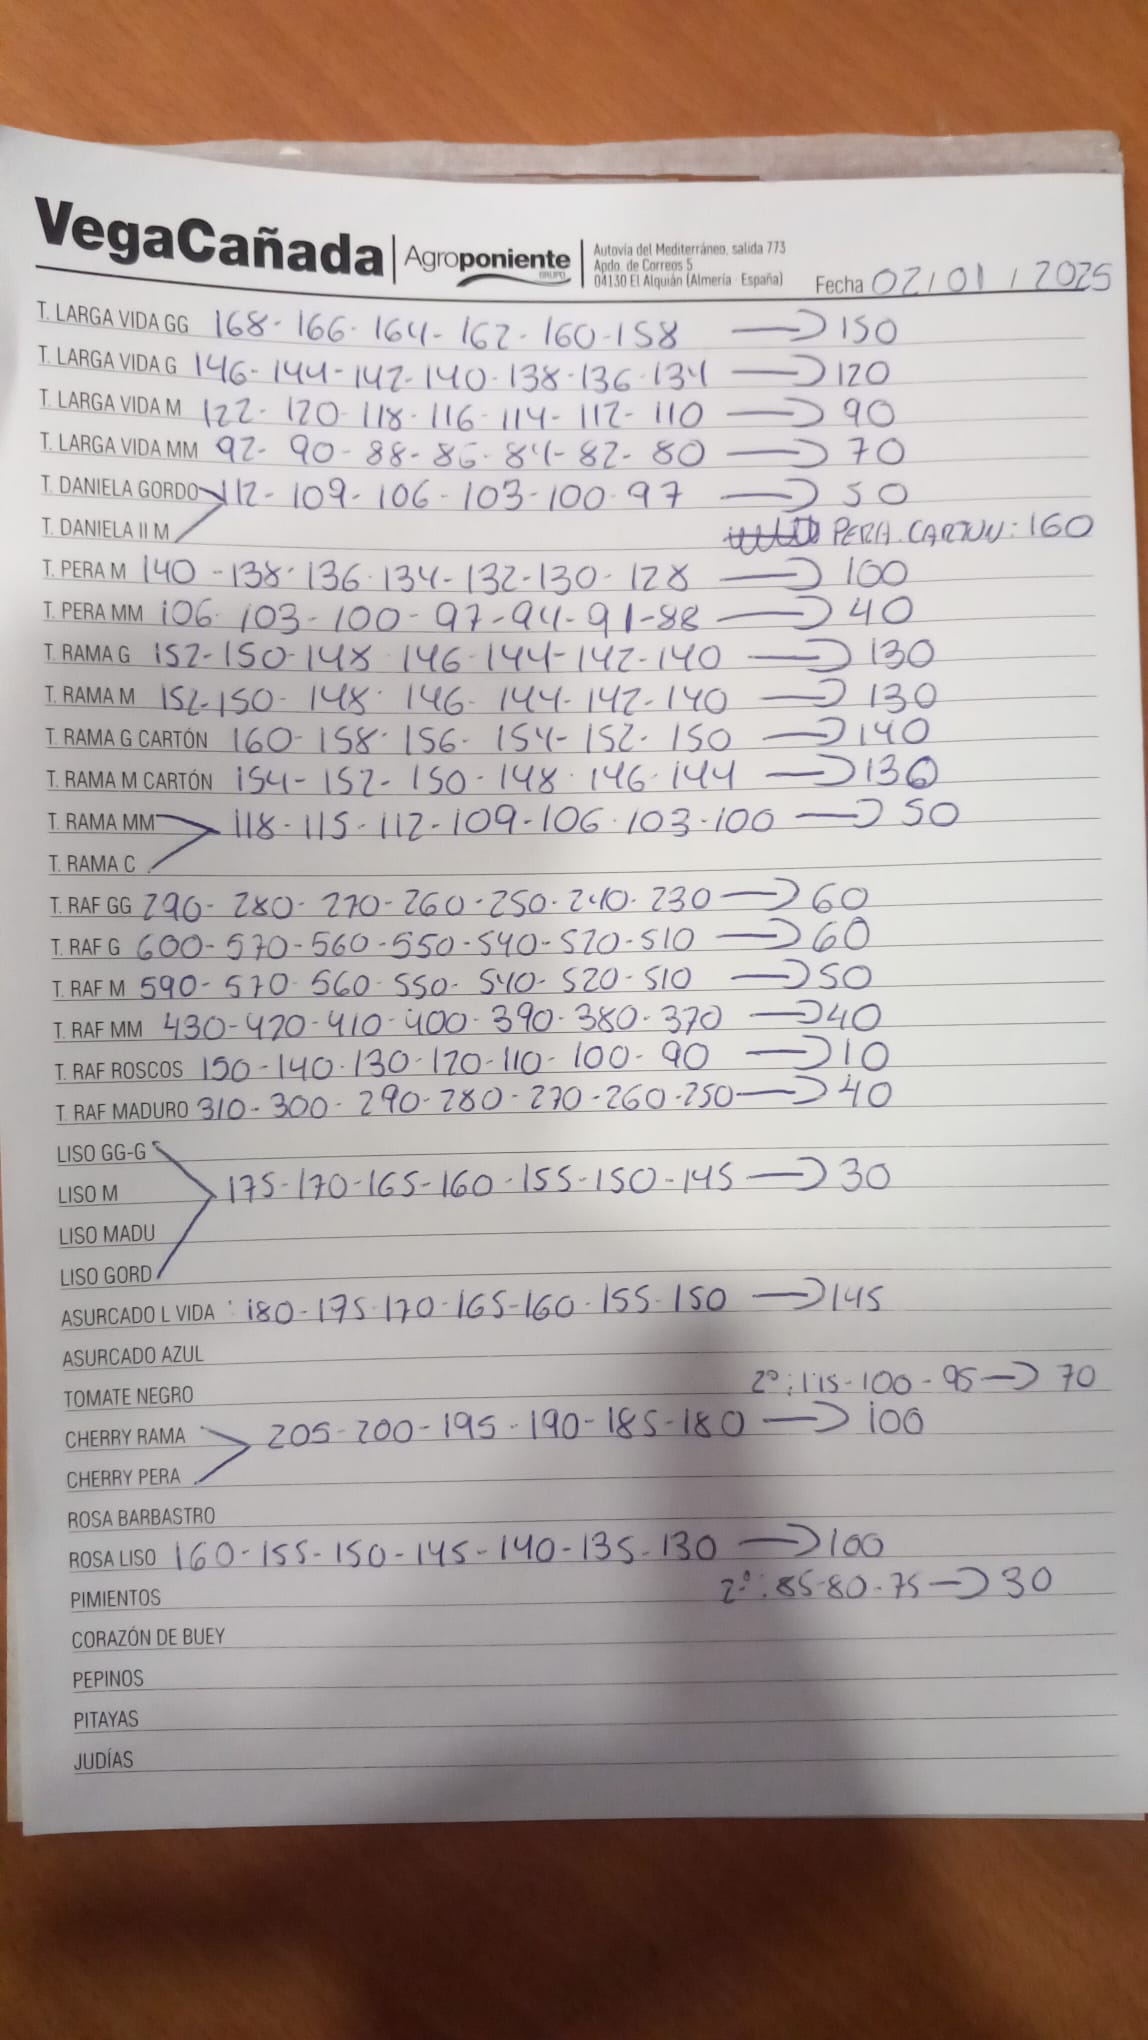 VegaCañada | Agroponiente GRUPO | Autovía del Mediterráneo, salida 773
Apdo. de Correos 5
04130 El Alquián (Almería - España)
Fecha 02/01/2025
T. LARGA VIDA GG 168-166-164-162-160-158 → 150
T. LARGA VIDA G 146-144-142-140-138-136-134 → 120
T. LARGA VIDA M 122-120-118-116-114-112-110 → 90
T. LARGA VIDA MM 92-90-88-86-84-82-80 → 70
T. DANIELA GORDO 112-109-106-103-100-97 → 50
T. DANIELA II M PERA CARTON: 160
T. PERA M 140-138-136-134-132-130-128 → 100
T. PERA MM 106-103-100-97-94-91-88 → 40
T. RAMA G 152-150-148-146-144-142-140 → 130
T. RAMA M 152-150-148-146-144-142-140 → 130
T. RAMA G CARTÓN 160-158-156-154-152-150 → 140
T. RAMA M CARTÓN 154-152-150-148-146-144 → 136
T. RAMA MM 118-115-112-109-106-103-100 → 50
T. RAMA C
T. RAF GG 290-280-270-260-250-240-230 → 60
T. RAF G 600-570-560-550-540-520-510 → 60
T. RAF M 590-570-560-550-540-520-510 → 50
T. RAF MM 430-420-410-400-390-380-370 → 40
T. RAF ROSCOS 150-140-130-120-110-100-90 → 10
T. RAF MADURO 310-300-290-280-270-260-250 → 40
LISO GG-G
LISO M 175-170-165-160-155-150-145 → 30
LISO MADU
LISO GORD
ASURCADO L VIDA : 180-175-170-165-160-155-150 → 145
ASURCADO AZUL
TOMATE NEGRO 2º: 115-100-95 → 70
CHERRY RAMA 205-200-195-190-185-180 → 100
CHERRY PERA
ROSA BARBASTRO
ROSA LISO 160-155-150-145-140-135-130 → 100
PIMIENTOS 2º: 85-80-75 → 30
CORAZÓN DE BUEY
PEPINOS
PITAYAS
JUDÍAS